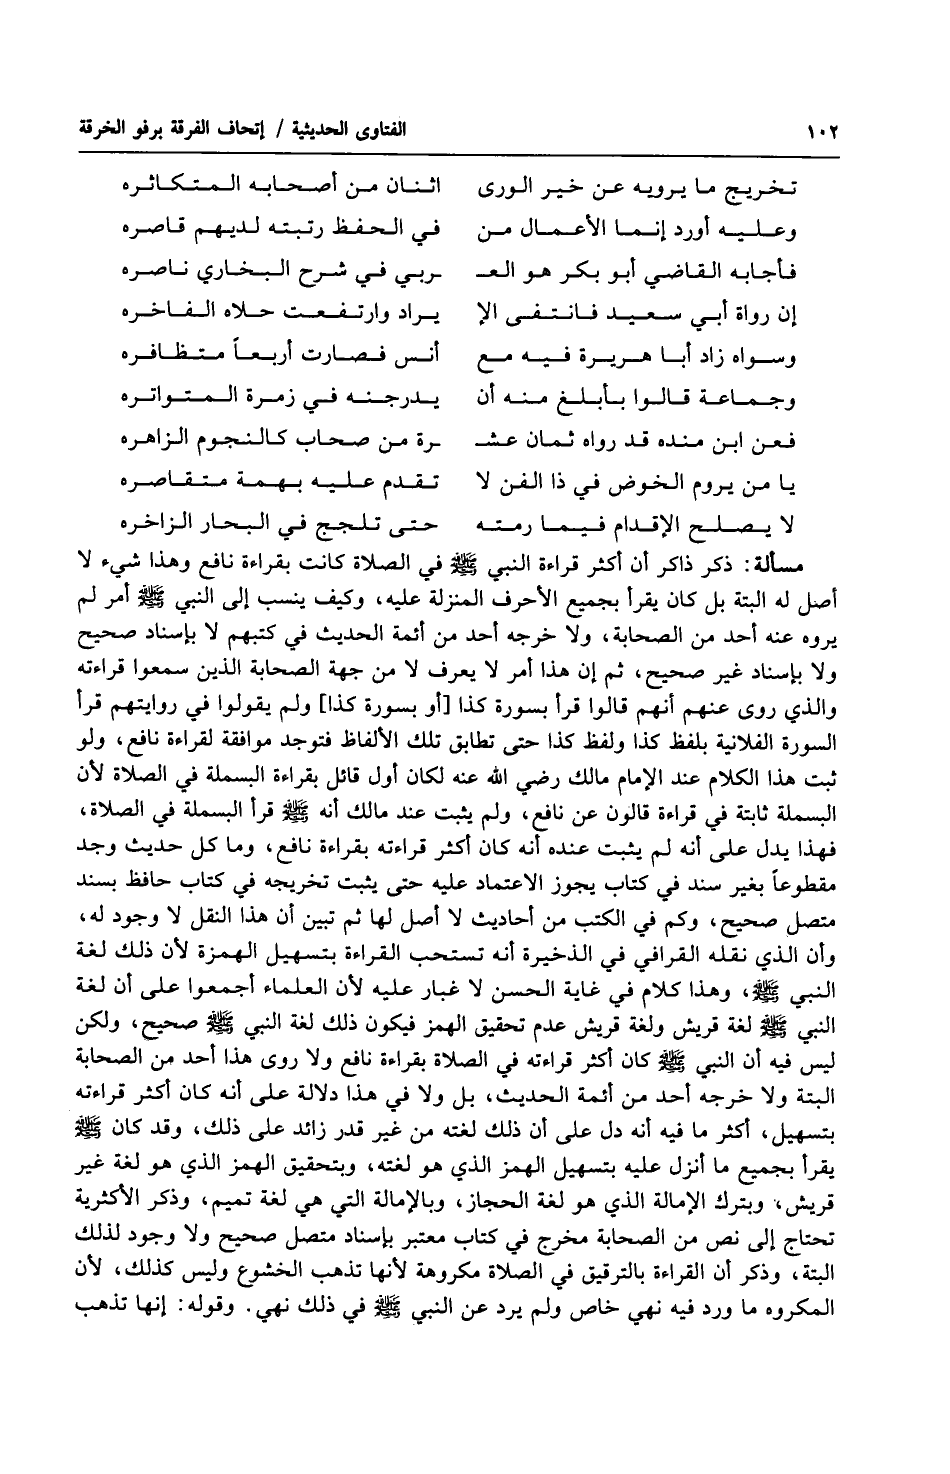 ١٠٢ الفتاوى الحديثية / إتحاف الفرقة برفو الخرقة
تخريج ما يرويه عن خير الورى اثنان من أصحابه المتكاثره
وعليه أورد إنما الأعمال من في الحفظ رتبته لديهم قاصره
فأجابه القاضي أبو بكر هو العـ ـربي في شرح البخاري ناصره
إن رواة أبي سعيد فانتفى الإ يراد وارتفعت حلاه الفاخره
وسواه زاد أبا هريرة فيه مع أنس فصارت أربعاً متظافره
وجماعة قالوا بأبلغ منه أن يدرجنه في زمرة المتواتره
فعن ابن منده قد رواه ثمان عشـ ـرة من صحاب كالنجوم الزاهره
يا من يروم الخوض في ذا الفن لا تقدم عليه بهمة متقاصره
لا يصلح الإقدام فيما رمته حتى تلجج في البحار الزاخره
مسألة: ذكر ذاكر أن أكثر قراءة النبي ﷺ في الصلاة كانت بقراءة نافع وهذا شيء لا
أصل له البتة بل كان يقرأ بجميع الأحرف المنزلة عليه، وكيف ينسب إلى النبي ﷺ أمر لم
يروه عنه أحد من الصحابة، ولا خرجه أحد من أئمة الحديث في كتبهم لا بإسناد صحيح
ولا بإسناد غير صحيح، ثم إن هذا أمر لا يعرف لا من جهة الصحابة الذين سمعوا قراءته
والذي روى عنهم أنهم قالوا قرأ بسورة كذا [أو بسورة كذا] ولم يقولوا في روايتهم قرأ
السورة الفلانية بلفظ كذا ولفظ كذا حتى تطابق تلك الألفاظ فتوجد موافقة لقراءة نافع، ولو
ثبت هذا الكلام عند الإمام مالك رضي الله عنه لكان أول قائل بقراءة البسملة في الصلاة لأن
البسملة ثابتة في قراءة قالون عن نافع، ولم يثبت عند مالك أنه ﷺ قرأ البسملة في الصلاة،
فهذا يدل على أنه لم يثبت عنده أنه كان أكثر قراءته بقراءة نافع، وما كل حديث وجد
مقطوعاً بغير سند في كتاب يجوز الاعتماد عليه حتى يثبت تخريجه في كتاب حافظ بسند
متصل صحيح، وكم في الكتب من أحاديث لا أصل لها ثم تبين أن هذا النقل لا وجود له،
وأن الذي نقله القرافي في الذخيرة أنه تستحب القراءة بتسهيل الهمزة لأن ذلك لغة
النبي ﷺ، وهذا كلام في غاية الحسن لا غبار عليه لأن العلماء أجمعوا على أن لغة
النبي ﷺ لغة قريش ولغة قريش عدم تحقيق الهمز فيكون ذلك لغة النبي ﷺ صحيح، ولكن
ليس فيه أن النبي ﷺ كان أكثر قراءته في الصلاة بقراءة نافع ولا روى هذا أحد من الصحابة
البتة ولا خرجه أحد من أئمة الحديث، بل ولا في هذا دلالة على أنه كان أكثر قراءته
بتسهيل، أكثر ما فيه أنه دل على أن ذلك لغته من غير قدر زائد على ذلك، وقد كان ﷺ
يقرأ بجميع ما أنزل عليه بتسهيل الهمز الذي هو لغته، وبتحقيق الهمز الذي هو لغة غير
قريش، وبترك الإمالة الذي هو لغة الحجاز، وبالإمالة التي هي لغة تميم، وذكر الأكثرية
تحتاج إلى نص من الصحابة مخرج في كتاب معتبر بإسناد متصل صحيح ولا وجود لذلك
البتة، وذكر أن القراءة بالترقيق في الصلاة مكروهة لأنها تذهب الخشوع وليس كذلك، لأن
المكروه ما ورد فيه نهي خاص ولم يرد عن النبي ﷺ في ذلك نهي. وقوله: إنها تذهب